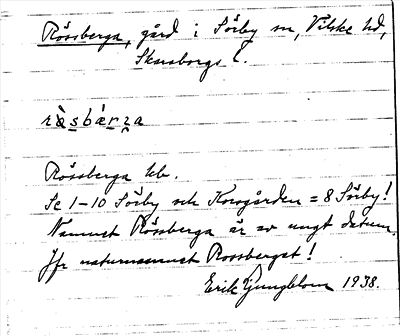 Rössberga, gård i Sörby sn, Vilske hd,
Skaraborgs l.
Rössberga kb.
Se 1-10 Sörby och Korsgården = 8 Sörby!
Namnet Rössberga är av ungt datum.
Jfr naturnamnet Rossberget!
Erik Ljungblom 1938.